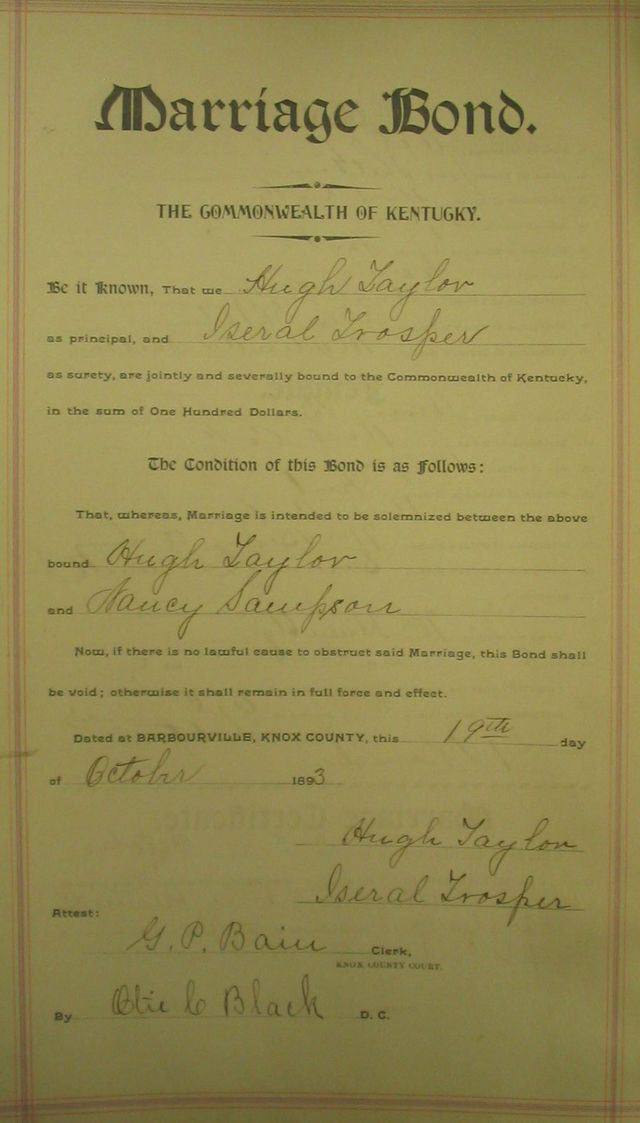 Marriage Bond.
THE COMMONWEALTH OF KENTUCKY.
Be it Known, That we Hugh Taylor
as principal, and Iseral Trosper
as surety, are jointly and severally bound to the Commonwealth of Kentucky,
in the sum of One Hundred Dollars.
The Condition of this Bond is as Follows:
That, whereas, Marriage is intended to be solemnized between the above
bound Hugh Taylor
and Nancy Sampson
Now, if there is no lawful cause to obstruct said Marriage, this Bond shall
be void; otherwise it shall remain in full force and effect.
Dated at BARBOURVILLE, KNOX COUNTY, this 19th day
of October 1893
Hugh Taylor
Iseral Trosper
Attest:
G. P. Bain Clerk,
KNOX COUNTY COURT.
By C Black D. C.